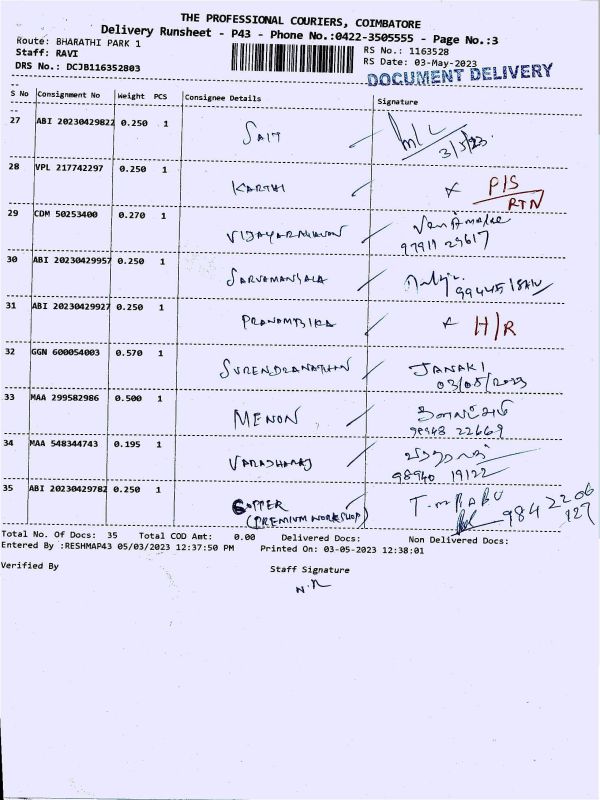 THE PROFESSIONAL COURIERS, COIMBATORE
Delivery Runsheet - P43 - Phone No.:0422-3505555 - Page No.:3
Route: BHARATHI PARK 1
RS No.: 1163528
Staff: RAVI
RS Date: 03-May-2023
DRS No.: DCJB116352803
DOCUMENT DELIVERY
S No Consignment No Weight PCS Consignee Details Signature
27 ABI 20230429822 0.250 1 SAIT
3/5/23
28 VPL 217742297 0.250 1 KARTHI x P/S
RTN
29 CDM 50253400 0.270 1 VIJAYARAGHAVAN
97911 29617
30 ABI 20230429957 0.250 1 SARVAMANGALA
31 ABI 20230429927 0.250 1 x H/R
32 GGN 600054003 0.570 1 SURENDRANATHAN JANAKI
03/05/2023
33 MAA 299582986 0.500 1 MENON
98948 22669
34 MAA 548344743 0.195 1 VARADHARAJ
98940 19122
35 ABI 20230429782 0.250 1 COPPER T.M BABU
(PREMIUM WORKSHOP) 9842206
127
Total No. Of Docs: 35 Total COD Amt: 0.00 Delivered Docs: Non Delivered Docs:
Entered By :RESHMAP43 05/03/2023 12:37:50 PM Printed On: 03-05-2023 12:38:01
Verified By Staff Signature